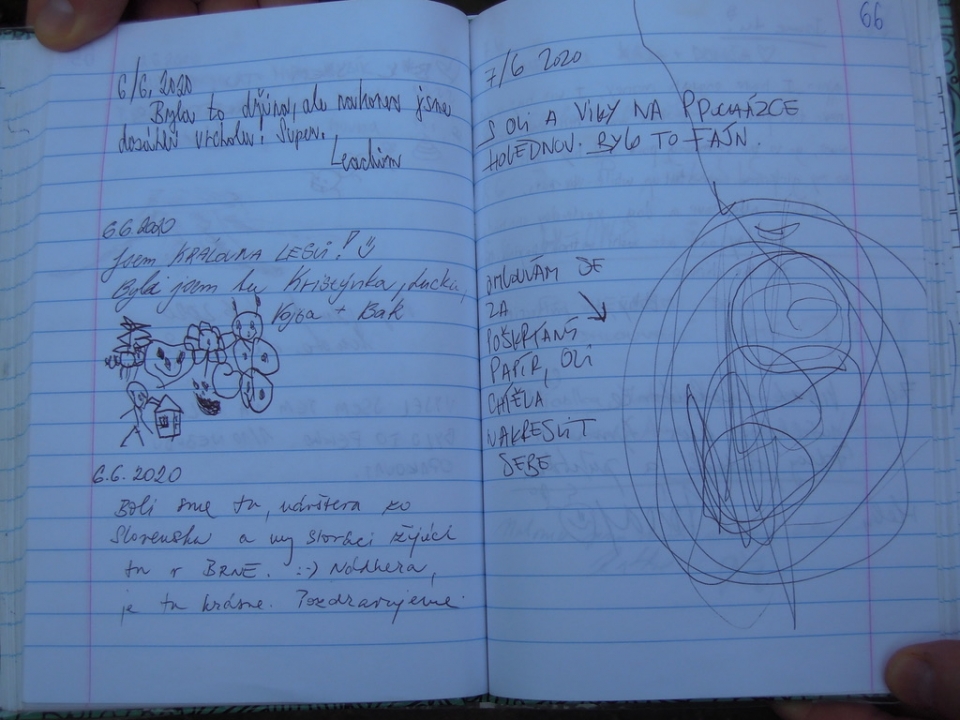 66
6/6. 2020
Byla to dřina, ale nakonec jsme
dosáhli vrcholu! Super.
Leachim
6.6.2020
Jsem KRÁLOVNA LESŮ!
Byla jsem tu Kristýnka, Lucka,
Vojta + Bak
6.6.2020
Boli sme tu, sme ko
Slovenska a my slováci žijúci
tu v BRNE. :-) Nádhera,
je tu krásne. Pozdravujeme
7/6 2020
S OLI A VIKY NA PROCHÁZCE
HOLEDNOU. BYLO TO FAJN.
OMLOUVÁM SE
ZA
POŠKRTANÝ
PAPÍR, OLI
CHTĚLA
NAKRESLIT
SEBE